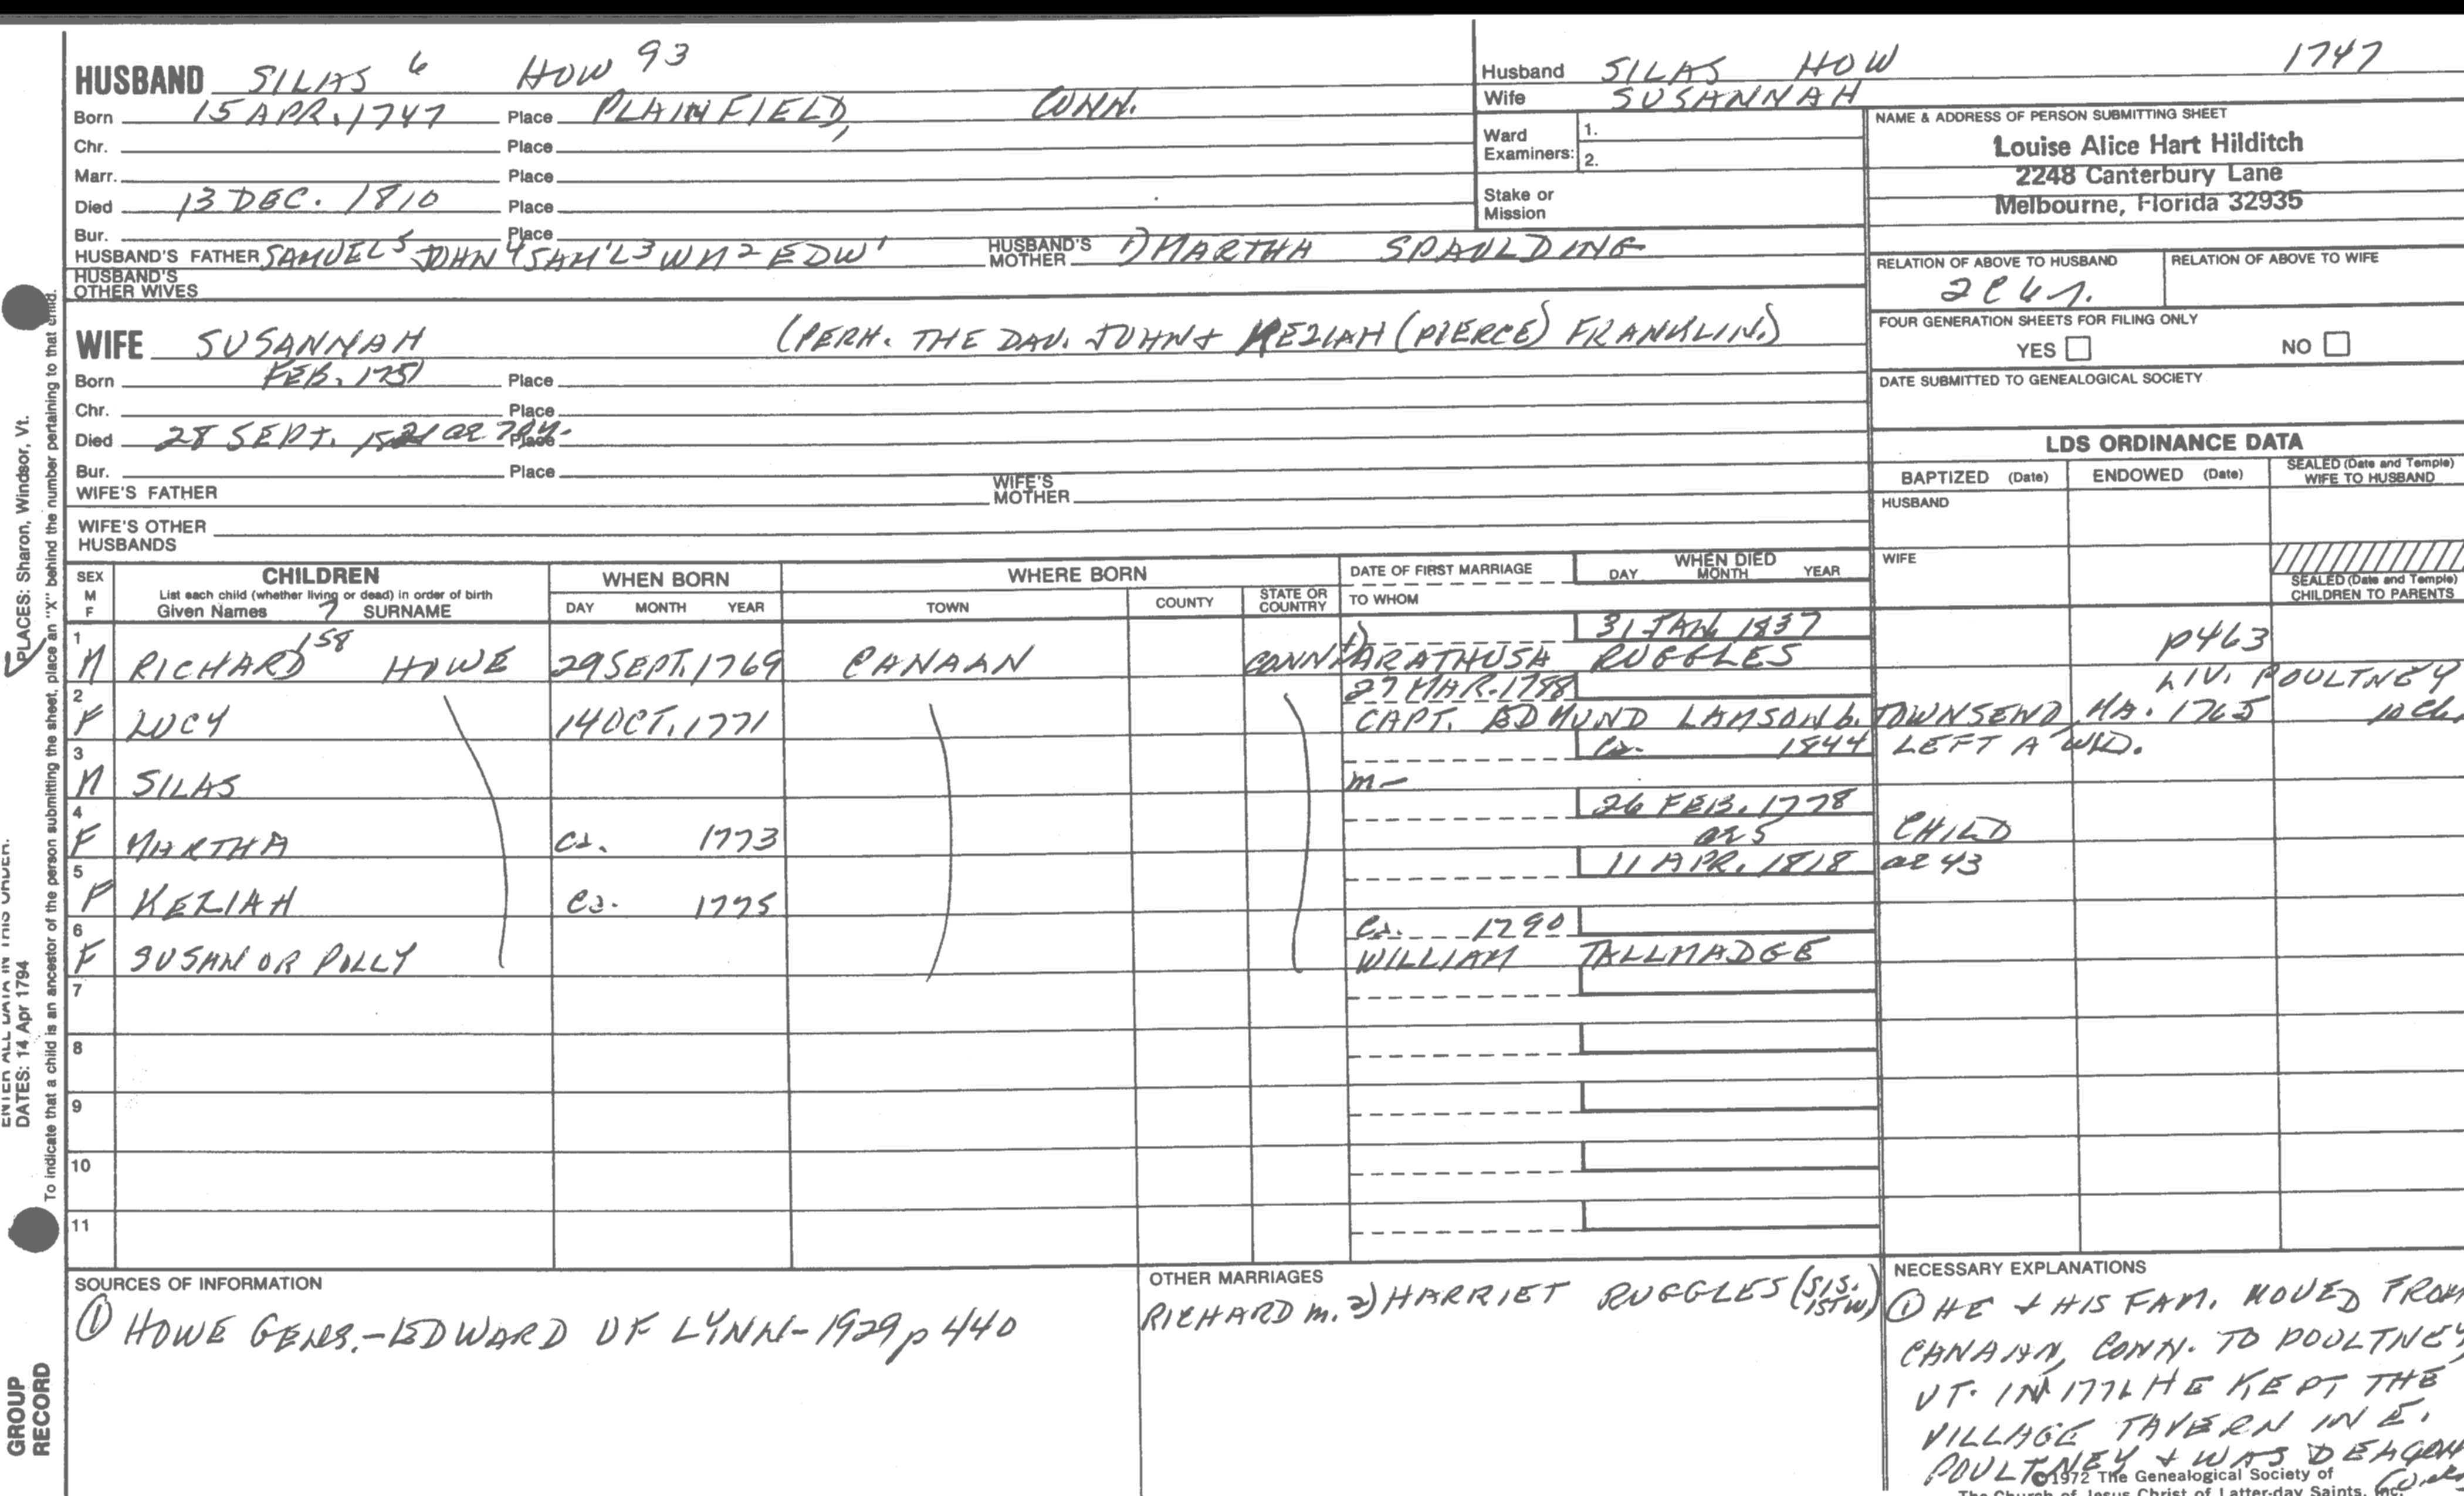 HUSBAND SILAS 6 HOW 93
Born 15 APR. 1747 Place PLAINFIELD, CONN.
Chr. Place
Marr. Place
Died 13 DEC. 1810 Place
Bur. Place
HUSBAND'S FATHER SAMUEL 5 JOHN 4 SAM'L 3 WM 2 EDW 1 HUSBAND'S MOTHER 1) MARTHA SPAULDING
HUSBAND'S OTHER WIVES
WIFE SUSANNAH (PERH. THE DAU. JOHN + KEZIAH (PIERCE) FRANKLIN.)
Born FEB. 1751 Place
Chr. Place
Died 28 SEPT. Place
Bur. Place
WIFE'S FATHER WIFE'S MOTHER
WIFE'S OTHER HUSBANDS
Husband SILAS HOW 1747
Wife SUSANNAH
Ward Examiners: 1. 2.
Stake or Mission
NAME & ADDRESS OF PERSON SUBMITTING SHEET
Louise Alice Hart Hilditch
2248 Canterbury Lane
Melbourne, Florida 32935
RELATION OF ABOVE TO HUSBAND RELATION OF ABOVE TO WIFE
FOUR GENERATION SHEETS FOR FILING ONLY
YES NO
DATE SUBMITTED TO GENEALOGICAL SOCIETY
LDS ORDINANCE DATA
BAPTIZED (Date) ENDOWED (Date) SEALED (Date and Temple) WIFE TO HUSBAND
HUSBAND
WIFE
SEALED (Date and Temple) CHILDREN TO PARENTS
SEX M F CHILDREN WHEN BORN WHERE BORN DATE OF FIRST MARRIAGE WHEN DIED
List each child (whether living or dead) in order of birth
Given Names 7 SURNAME DAY MONTH YEAR TOWN COUNTY STATE OR COUNTRY TO WHOM DAY MONTH YEAR
1 31 JAN. 1837 p463
M RICHARD 158 HOWE 29 SEPT. 1769 CANAAN CONN. 1) ARATHUSA RUGGLES
2 27 MAR. 1788 LIV. POULTNEY
F LUCY 14 OCT. 1771 CAPT. EDMUND LAMSON b. TOWNSEND, MA. 1765 10 ch.
3 ca. 1844 LEFT A WID.
M SILAS m-
4 26 FEB. 1778
F MARTHA ca. 1773 ae 5 CHILD
5 11 APR. 1818 ae 43
F KEZIAH ca. 1775
6 ca. 1790
F SUSAN OR POLLY WILLIAM TALLMADGE
7
8
9
10
11
SOURCES OF INFORMATION
① HOWE GENS.-EDWARD OF LYNN-1929 p 440
OTHER MARRIAGES
RICHARD m. 2) HARRIET RUGGLES (SIS. 1ST W)
NECESSARY EXPLANATIONS
① HE + HIS FAM. MOVED FROM
CANAAN, CONN. TO POULTNEY
VT. IN HE KEPT THE
VILLAGE TAVERN IN E.
POULTNEY + WAS DEACON
©1972 The Genealogical Society of
The Church of Jesus Christ of Latter-day Saints, Inc.
PLACES: Sharon, Windsor, Vt.
ENTER ALL DATA IN THIS ORDER:
DATES: 14 Apr 1794
To indicate that a child is an ancestor of the person submitting the sheet, place an "X" behind the number pertaining to that child.
GROUP
RECORD